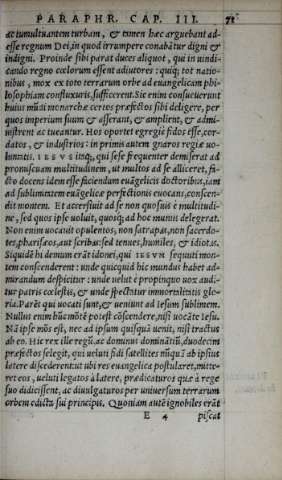 PARAPHR. CAP. III. 71
ac tumultuantem turbam, & tamen hæc arguebant ad-
esse regnum Dei, in quod irrumpere conabãtur digni &
indigni. Proinde sibi parat duces aliquot, qui in uindi-
cando regno cœlorum essent adiutores: quiq; tot natio-
nibus, mox ex toto terrarum orbe ad euangelicam phi-
losophiam confluxuris, sufficerent. Sic enim consueuerunt
huius mũdi monarchæ certos præfectos sibi deligere, per
quos imperium suum & asserant, & amplient, & admi-
nistrent ac tueantur. Hos oportet egregiè fidos esse, cor-
datos, & industrios: in primis autem gnaros regiæ uo-
luntatis. IESVS itaq;, qui sese frequenter demiserat ad
promiscuam multitudinem, ut multos ad se alliceret, fa-
cto docens idem esse faciendum euãgelicis doctoribus, iam
ad sublimitem euãgelicæ perfectionis euocans, conscen-
dit montem. Et accersiuit ad se non quosuis è multitudi-
ne, sed quos ipse uoluit, quosq; ad hoc munus delegerat.
Non enim uocauit opulentos, non satrapas, non sacerdo-
tes, pharisæos, aut scribas: sed tenues, humiles, & idiotas.
Siquidẽ hi demum erãt idonei, qui IESVM sequuti mon-
tem conscenderent: unde quicquid hic mundus habet ad-
mirandum despicitur: unde uelut è propinquo uox audi-
tur patris cœlestis, & unde spectatur immortalitatis glo-
ria. Parẽt qui uocati sunt, & ueniunt ad Iesum sublimem.
Nullus enim huc mõtẽ potest cõscendere, nisi uocãte Iesu.
Nã ipse mõs est, nec ad ipsum quisquã uenit, nisi tractus
ab eo. Hic rex ille regũ, ac dominus dominãtiũ, duodecim
præfectos selegit, qui ueluti fidi satellites nũquã ab ipsius
latere discederent: ut ubi res euangelica postularet, mitte-
ret eos, ueluti legatos à latere, prædicaturos quæ à rege
suo didicissent, ac diuulgaturos per uniuersum terrarum
orbem edicta sui principis. Quoniam autẽ ignobiles erãt
E 4 piscat